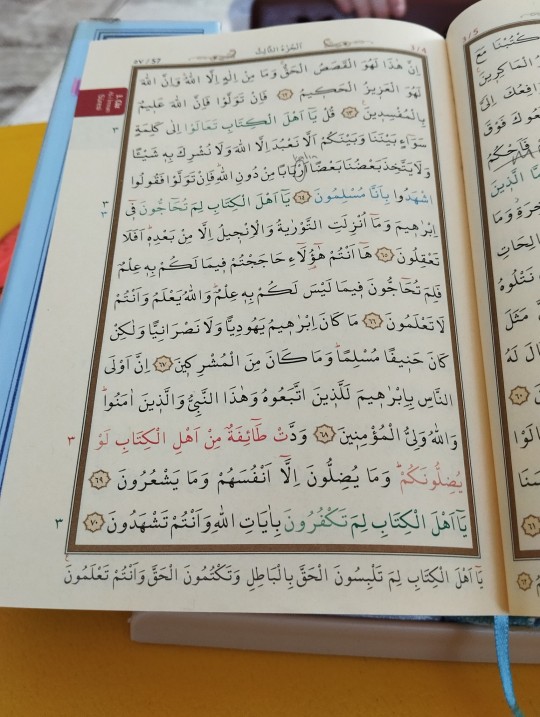 ٥٧ / 57
الجزء الثالث
3 / 4
اِنَّ هٰذَا لَهُوَ الْقَصَصُ الْحَقُّۚ وَمَا مِنْ اِلٰهٍ اِلَّا اللّٰهُۜ وَاِنَّ اللّٰهَ
لَهُوَ الْعَز۪يزُ الْحَك۪يمُ ﴿٦٢﴾ فَاِنْ تَوَلَّوْا فَاِنَّ اللّٰهَ عَل۪يمٌ
بِالْمُفْسِد۪ينَ۟ ﴿٦٣﴾ قُلْ يَٓا اَهْلَ الْكِتَابِ تَعَالَوْا اِلٰى كَلِمَةٍ
سَوَٓاءٍ بَيْنَنَا وَبَيْنَكُمْ اَلَّا نَعْبُدَ اِلَّا اللّٰهَ وَلَا نُشْرِكَ بِه۪ شَيْـًٔا
وَلَا يَتَّخِذَ بَعْضُنَا بَعْضًا اَرْبَابًا مِنْ دُونِ اللّٰهِۜ فَاِنْ تَوَلَّوْا فَقُولُوا
اشْهَدُوا بِاَنَّا مُسْلِمُونَ ﴿٦٤﴾ يَٓا اَهْلَ الْكِتَابِ لِمَ تُحَٓاجُّونَ ف۪ٓي
اِبْرٰه۪يمَ وَمَٓا اُنْزِلَتِ التَّوْرٰيةُ وَالْاِنْج۪يلُ اِلَّا مِنْ بَعْدِه۪ۜ اَفَلَا
تَعْقِلُونَ ﴿٦٥﴾ هَٓا اَنْتُمْ هٰٓؤُ۬لَٓاءِ حَاجَجْتُمْ ف۪يمَا لَكُمْ بِه۪ عِلْمٌ
فَلِمَ تُحَٓاجُّونَ ف۪يمَا لَيْسَ لَكُمْ بِه۪ عِلْمٌۜ وَاللّٰهُ يَعْلَمُ وَاَنْتُمْ
لَا تَعْلَمُونَ ﴿٦٦﴾ مَا كَانَ اِبْرٰه۪يمُ يَهُودِيًّا وَلَا نَصْرَانِيًّا وَلٰكِنْ
كَانَ حَن۪يفًا مُسْلِمًاۜ وَمَا كَانَ مِنَ الْمُشْرِك۪ينَ ﴿٦٧﴾ اِنَّ اَوْلَى
النَّاسِ بِاِبْرٰه۪يمَ لَلَّذ۪ينَ اتَّبَعُوهُ وَهٰذَا النَّبِيُّ وَالَّذ۪ينَ اٰمَنُواۜ
وَاللّٰهُ وَلِيُّ الْمُؤْمِن۪ينَ ﴿٦٨﴾ وَدَّتْ طَٓائِفَةٌ مِنْ اَهْلِ الْكِتَابِ لَوْ
يُضِلُّونَكُمْۜ وَمَا يُضِلُّونَ اِلَّٓا اَنْفُسَهُمْ وَمَا يَشْعُرُونَ ﴿٦٩﴾
يَٓا اَهْلَ الْكِتَابِ لِمَ تَكْفُرُونَ بِاٰيَاتِ اللّٰهِ وَاَنْتُمْ تَشْهَدُونَ ﴿٧٠﴾
يَٓا اَهْلَ الْكِتَابِ لِمَ تَلْبِسُونَ الْحَقَّ بِالْبَاطِلِ وَتَكْتُمُونَ الْحَقَّ وَاَنْتُمْ تَعْلَمُونَ